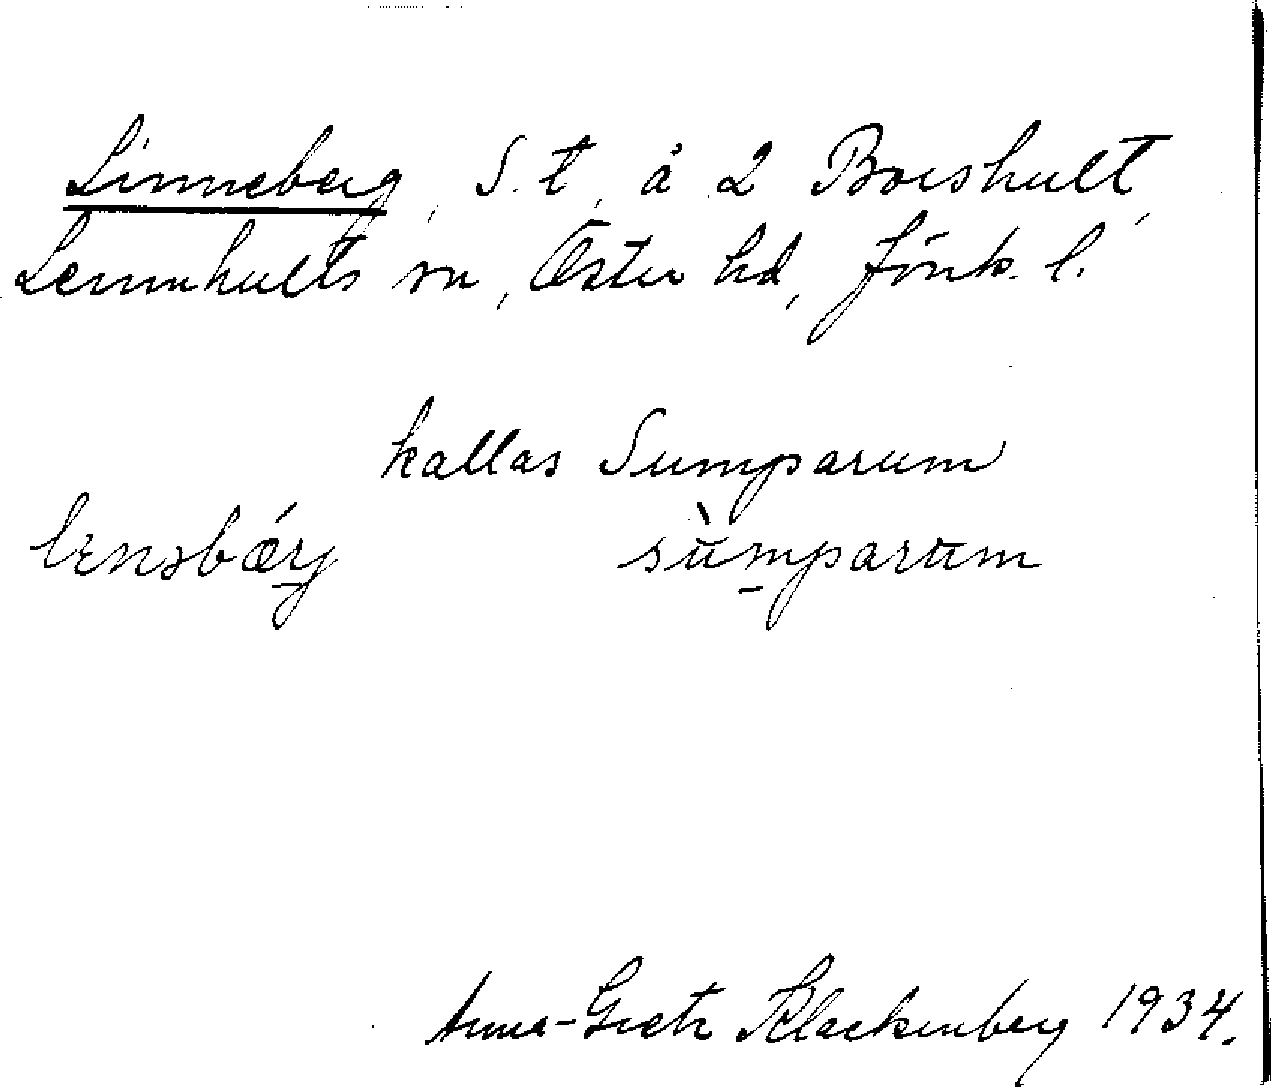 Linneberg, S.t. å 2 Boeshult,
Lemnhults sn, Öster hd, Jönk. l.
kallas Sumparum
lenəbǽrj sùmparum
Anna-Greta Klackenberg 1934.